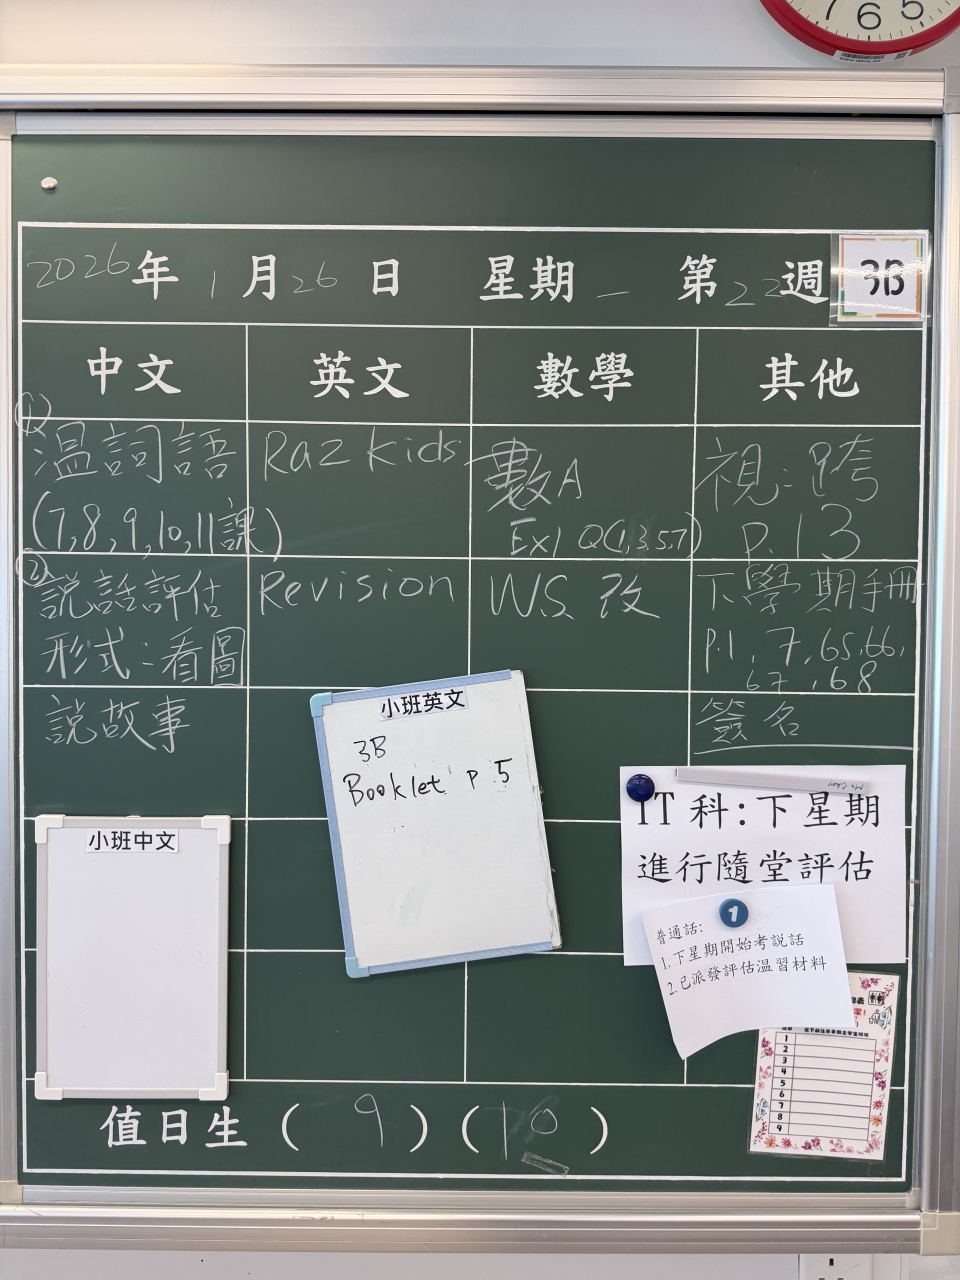 7 6 5
2026年 1月26日 星期一 第22週 3B
中文 英文 數學 其他
① 温詞語
(7,8,9,10,11課)
② 説話評估
形式：看圖
説故事
Raz kids
Revision
數A
Ex1 Q(1,3,5,7)
W.S. 改
視：跨
P.13
下學期手冊
P.1, 7, 65, 66,
67, 68
簽名
小班英文
3B
Booklet P.5
小班中文
IT科：下星期
進行隨堂評估
普通話:
1.下星期開始考説話
2.已派發評估温習材料
1
2
3
4
5
6
7
8
9
值日生（9）（10）